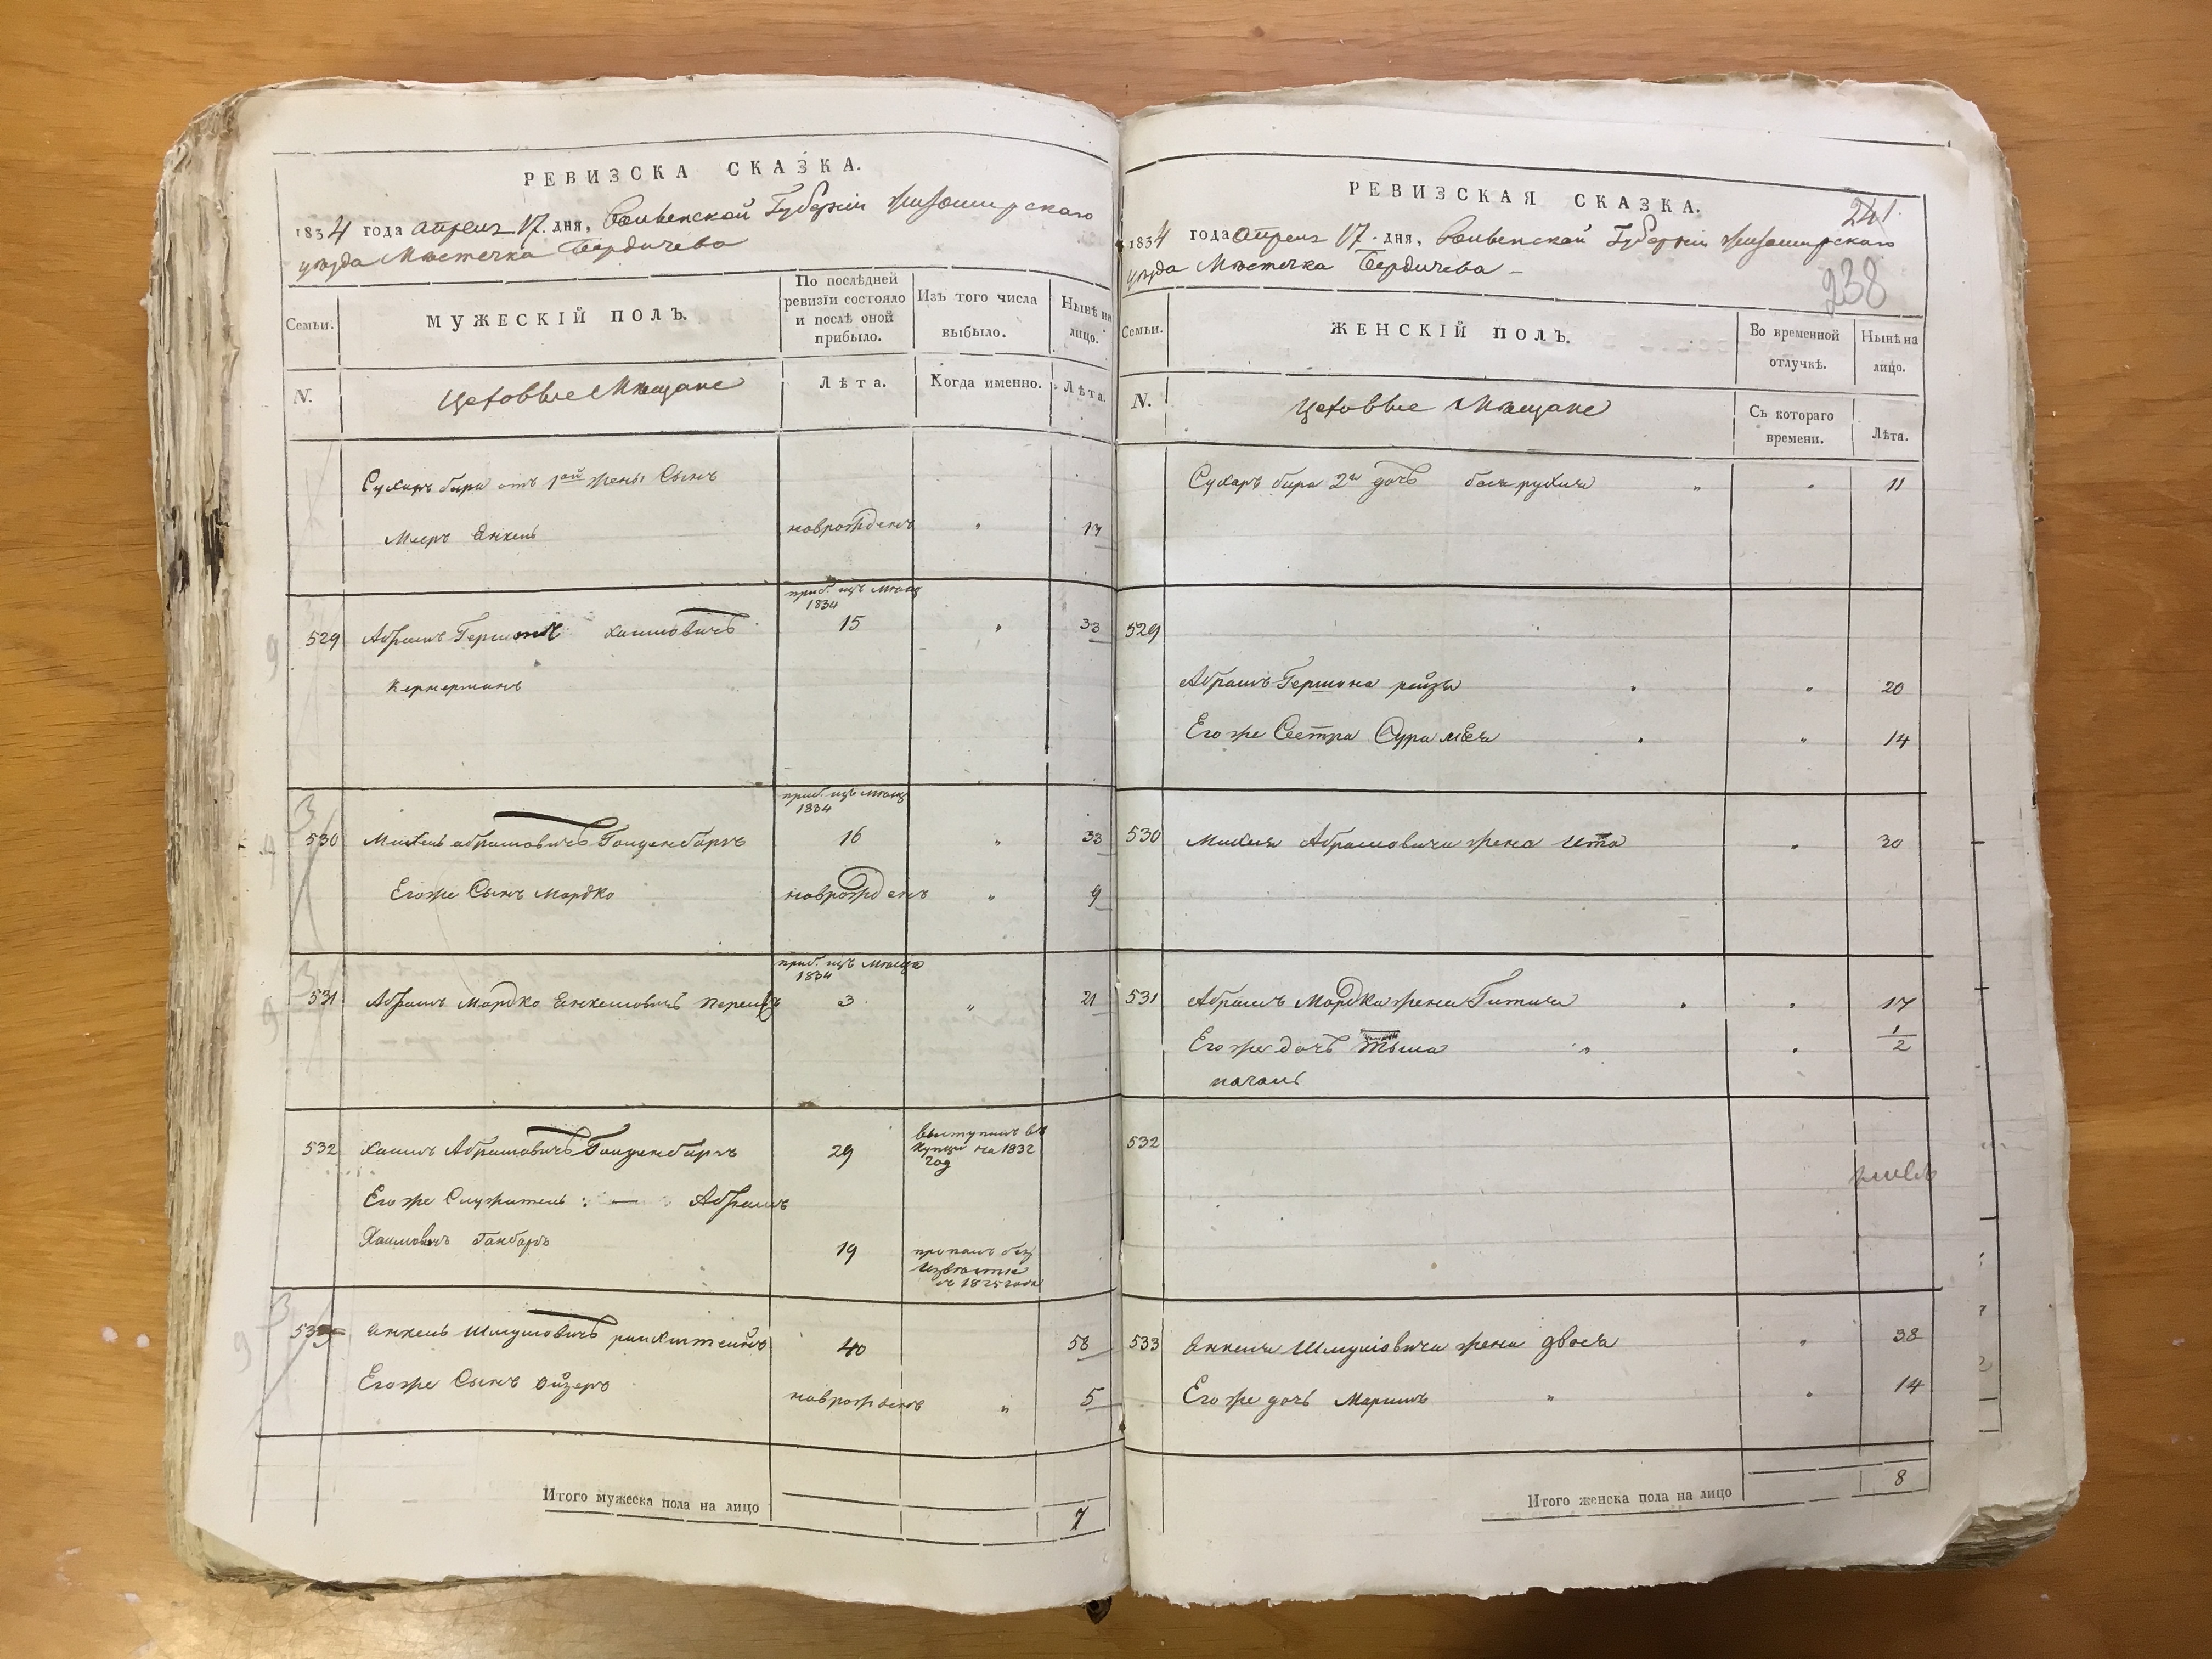 РЕВИЗСКА СКАЗКА.
1834 года апреля 17. дня, Волынской Губернии Житомирского
уезда Местечка Бердичева
Семьи.
МУЖЕСКІЙ ПОЛЪ.
По послѣдней
ревизїи состояло
и послѣ оной
прибыло.
Изъ того числа
выбыло.
Нынѣ на
лицо.
N.
Цеховые Мещане
Лѣта.
Когда именно.
Лѣта.
Сухаръ бера отъ 1ой жены Сынъ
Мееръ Янкель
новрожденъ
"
17
приб. изъ
1834
529
Абрамъ Гершонъ Хаимовичъ
15
"
33
Кернерманъ
приб. изъ
1834
530
Михель абрамовичъ Голденбаръ
16
"
33
Егоже Сынъ Мордко
новрожденъ
"
9
приб. изъ
1834
531
Абрамъ Мордко Янкелевичъ
3
"
21
532
Хаимъ Абрамовичъ
29
выступилъ въ
купцы на 1832
год
Егоже Служитель : — : Абрамъ
Хаимовичъ
19
пропалъ безъ
известія
съ 1825 года
533
Янкель Шмулiовичъ
40
58
Егоже Сынъ Ойзеръ
новрожденъ
"
5
Итого мужеска пола на лицо
7
РЕВИЗСКАЯ СКАЗКА.
241
1834 года апреля 17. дня, Волынской Губернии Житомирского
уезда Местечка Бердичева —
238
Семьи.
ЖЕНСКІЙ ПОЛЪ.
Во временной
отлучкѣ.
Нынѣ на
лицо.
N.
Цеховые Мещане
Съ котораго
времени.
Лѣта.
Сухаръ бера 2я дочь бася рухля
"
"
11
529
Абрамъ Гершона рейзя
"
"
20
Егоже Сестра Сура лея
"
"
14
530
Михеля Абрамовича жена Ита
"
30
531
Абрамъ Мордка жена Гитля
"
"
17
Егоже дочь
"
"
1/2
532
533
Янкеля Шмулiовича жена двося
"
38
Егоже дочь Маримъ
"
"
14
Итого женска пола на лицо
8